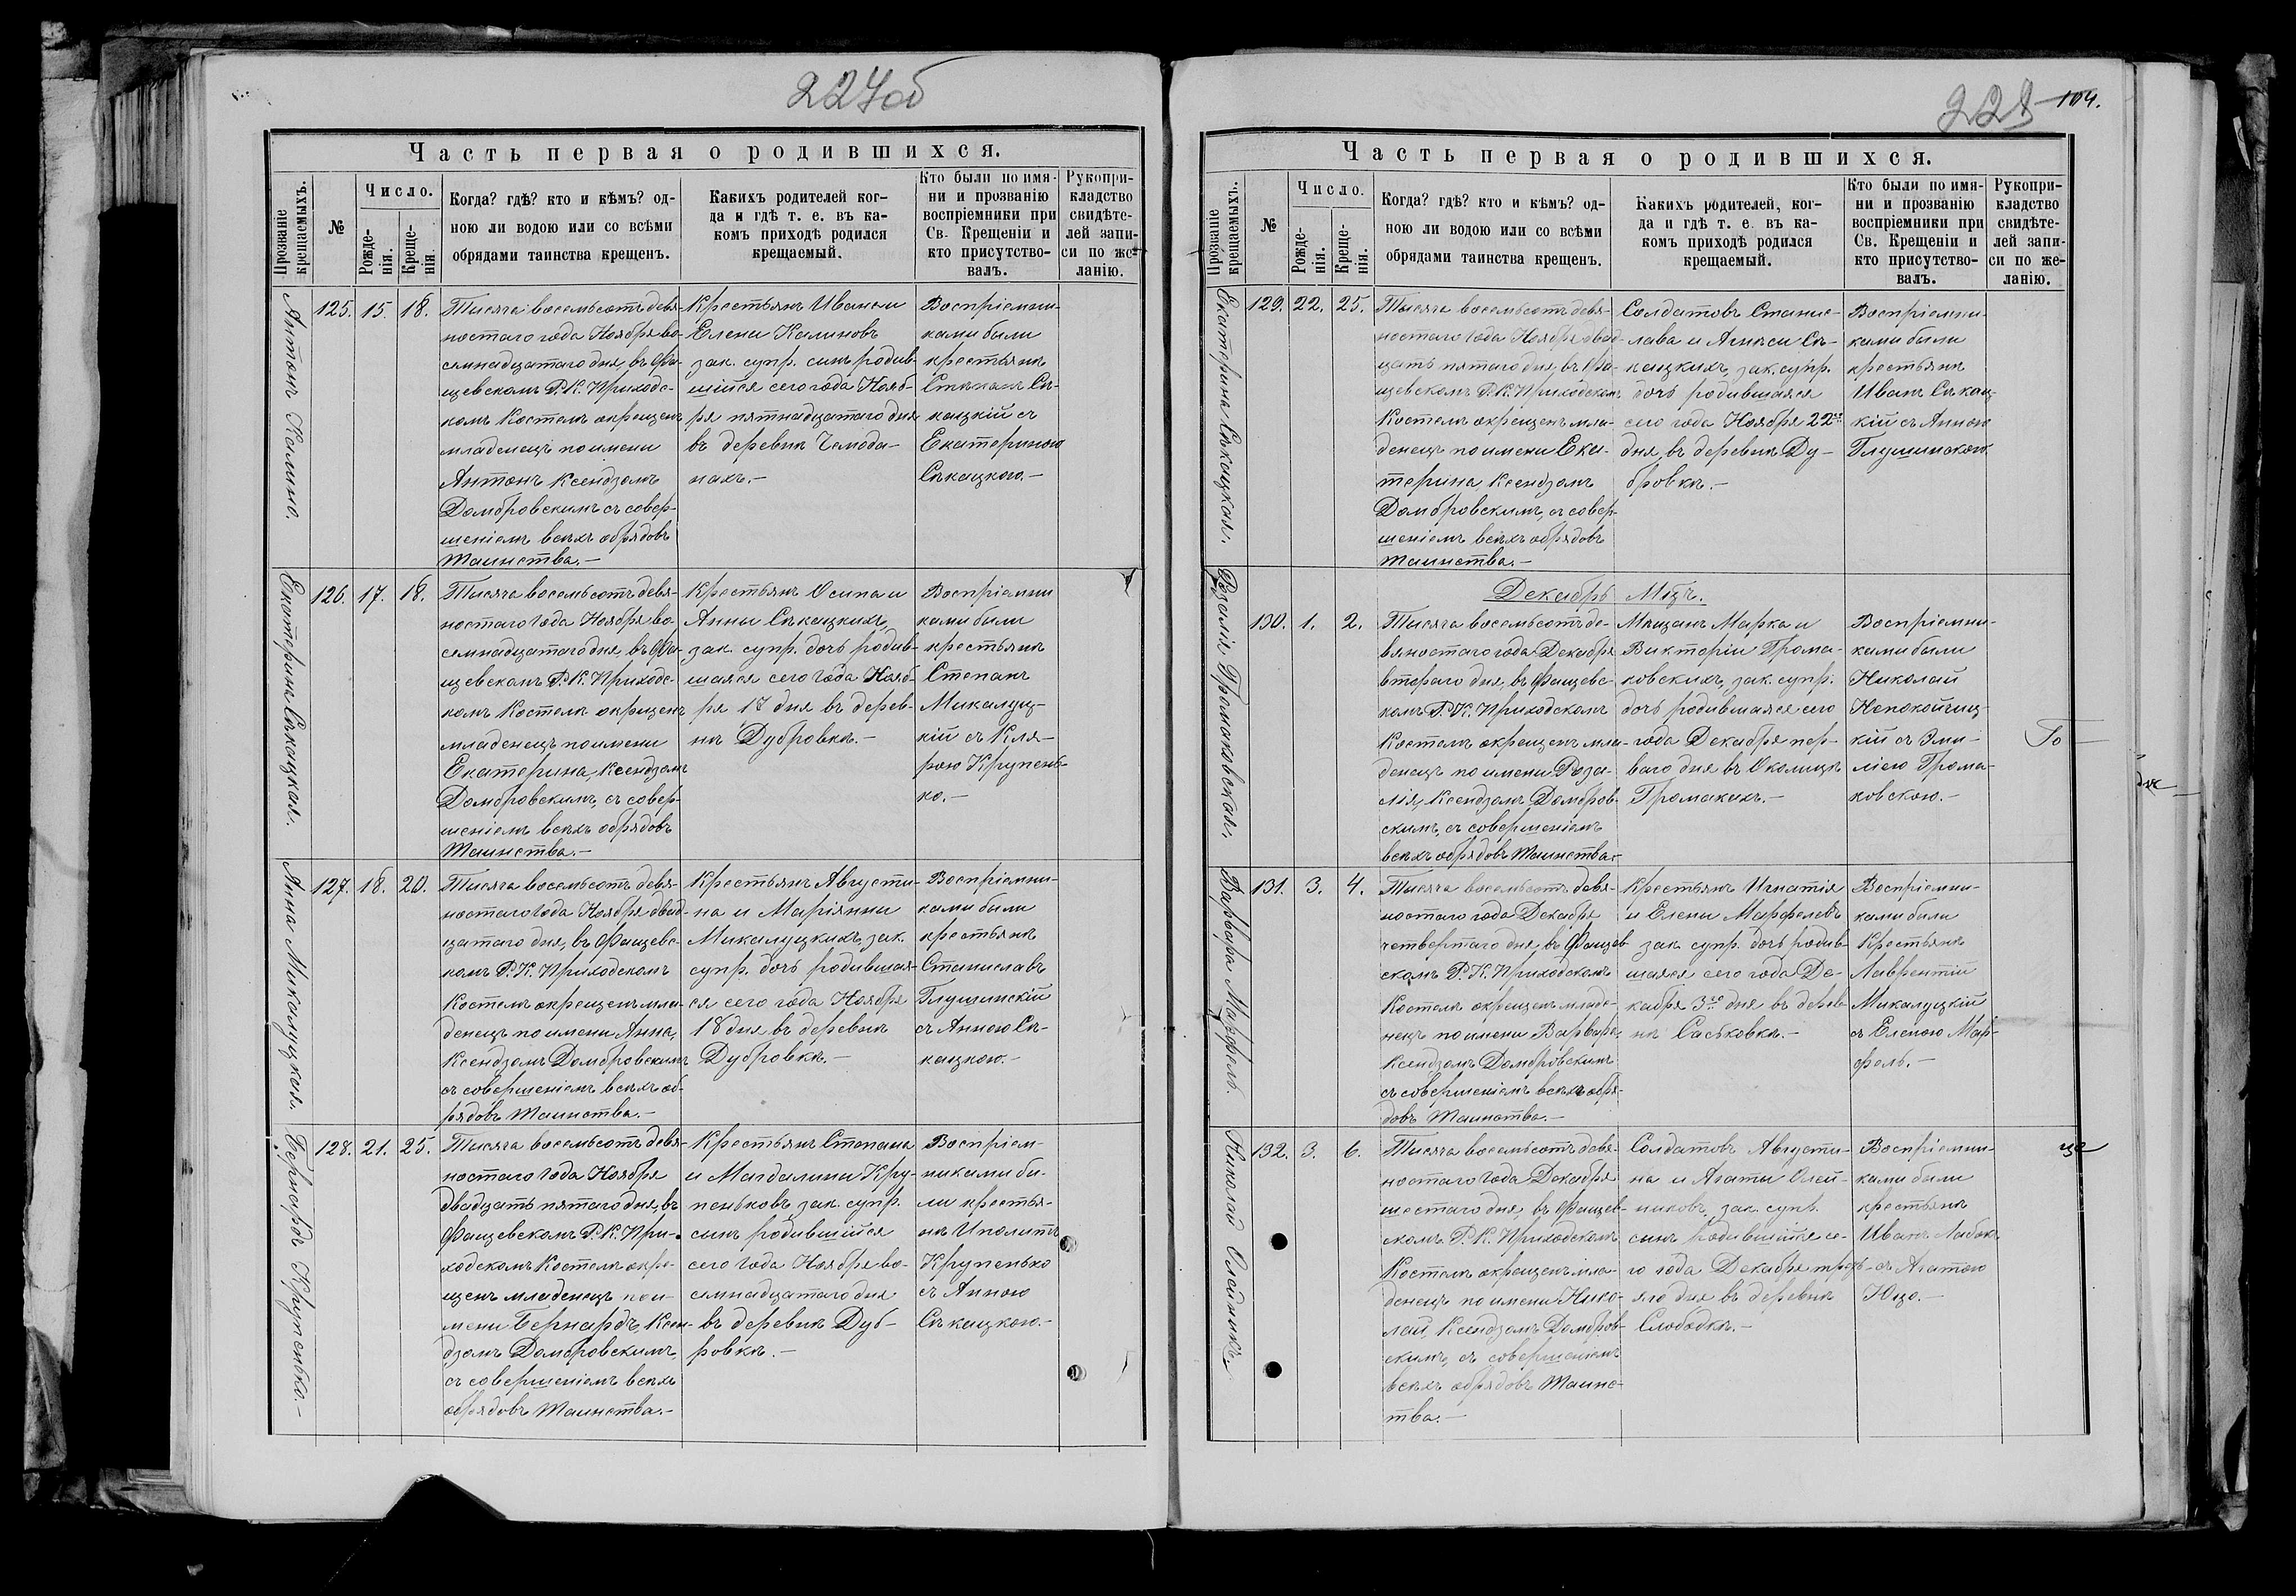 227об
Часть первая о родившихся.
Прозваніе крещаемыхъ.
№
Число.
Рожде-
нія.
Креще-
нія.
Когда? гдѣ? кто и кѣмъ? од-
ною ли водою или со всѣми
обрядами таинства крещенъ.
Какихъ родителей ког-
да и гдѣ т. е. въ ка-
комъ приходѣ родился
крещаемый.
Кто были по имя-
ни и прозванію
воспріемники при
Св. Крещеніи и
кто присутство-
валъ.
Рукопри-
кладство
свидѣте-
лей запи-
си по же-
ланію.
Антонъ Калино.
125. 15. 18.
Тысяча восемьсотъ девя-
ностаго года Ноября во-
семнадцатаго дня, въ Фа-
щевскомъ Р. К. Приходс-
комъ Костелѣ окрещенъ
младенецъ по имени
Антонъ Ксендзомъ
Домбровскимъ съ совер-
шеніемъ всѣхъ обрядовъ
Таинства.-
Крестьянъ Ивана и
Елены Калиновъ
зак. супр. сынъ родив-
шійся сего года Нояб-
ря пятнадцатаго дня
въ деревнѣ Чемода-
нахъ.-
Воспріемни-
ками были
крестьянѣ
Степанъ Сѣ-
кацкій съ
Екатериною
Сѣкацкою.-
Екатерина Сѣкацкая.
126. 17. 18.
Тысяча восемьсотъ девя-
ностаго года Ноября во-
семнадцатаго дня, въ Фа-
щевскомъ Р. К. Приходс-
комъ Костелѣ окрещенъ
младенецъ по имени
Екатерина, Ксендзомъ
Домбровскимъ, съ совер-
шеніемъ всѣхъ обрядовъ
Таинства.-
Крестьянъ Осипа и
Анны Сѣкацкихъ,
зак. супр. дочь родив-
шаяся сего года Нояб-
ря 17 дня въ дерев-
нѣ Дубровкѣ.-
Воспріемни
ками были
крестьянѣ
Степанъ
Микалуц-
кій съ Кля-
рою Крупень-
ко.-
Анна Микалуцкая.
127. 18. 20.
Тысяча восемьсотъ девя-
ностаго года Ноября двад-
цатаго дня, въ Фащевс-
комъ Р. К. Приходскомъ
Костелѣ окрещенъ мла-
денецъ по имени Анна,
Ксендзомъ Домбровскимъ
съ совершеніемъ всѣхъ об-
рядовъ Таинства.-
Крестьянъ Августи-
на и Маріянны
Микалуцкихъ, зак.
супр. дочь родившая-
ся сего года Ноября
18 дня въ деревнѣ
Дубровкѣ.-
Воспріемни-
ками были
крестьянѣ
Станиславъ
Глушинскій
съ Анною Сѣ-
кацкою.-
Бернардъ Крупенько.-
128. 21. 25.
Тысяча восемьсотъ девя-
ностаго года Ноября
двадцать пятаго дня, въ
Фащевскомъ Р. К. При-
ходскомъ Костелѣ окре-
щенъ младенецъ по и-
мени Бернардъ, Ксен-
дзомъ Домбровскимъ,
съ совершеніемъ всѣхъ
обрядовъ Таинства.-
Крестьянъ Степана
и Магдалины Кру-
пеньковъ зак. супр.
сынъ родившійся
сего года Ноября во-
семнадцатаго дня
въ деревнѣ Дуб-
ровкѣ.-
Воспріем-
никами бы-
ли крестья-
нѣ Иполитъ
Крупенько
съ Анною
Сѣкацкою.-
228 104.
Часть первая о родившихся.
Прозваніе крещаемыхъ.
№
Число.
Рожде-
нія.
Креще-
нія.
Когда? гдѣ? кто и кѣмъ? од-
ною ли водою или со всѣми
обрядами таинства крещенъ.
Какихъ родителей, ког-
да и гдѣ т. е. въ ка-
комъ приходѣ родился
крещаемый.
Кто были по имя-
ни и прозванію
воспріемники при
Св. Крещеніи и
кто присутство-
валъ.
Рукопри-
кладство
свидѣте-
лей запи-
си по же-
ланію.
Екатерина Сѣкацкая.
129. 22. 25.
Тысяча восемьсотъ девя-
ностаго года Ноября двад-
цать пятаго дня, въ Фа-
щевскомъ Р. К. Приходскомъ
Костелѣ окрещенъ мла-
денецъ по имени Ека-
терина Ксендзомъ
Домбровскимъ, съ совер-
шеніемъ всѣхъ обрядовъ
Таинства.-
Солдатовъ Станис-
лава и Агнесы Сѣ-
кацкихъ, зак. супр.
дочь родившаяся
сего года Ноября 22го
дня, въ деревнѣ Ду-
бровкѣ.-
Воспріемни-
ками были
крестьянѣ
Иванъ Сѣкац-
кій съ Анною
Глушинскою.
Декабрь Мѣц.
Розалія Громаковская.
130. 1. 2.
Тысяча восемьсотъ де-
вяностаго года Декабря
втораго дня, въ Фащевс-
комъ Р. К. Приходскомъ
Костелѣ окрещенъ мла-
денецъ по имени Роза-
лія, Ксендзомъ Домбров-
скимъ, съ совершеніемъ
всѣхъ обрядовъ Таинства.-
Мѣщанъ Марка и
Викторіи Грома-
ковскихъ, зак. супр.
дочь родившаяся сего
года Декабря пер-
ваго дня въ Околицѣ
Громакихъ.-
Воспріемни-
ками были
Николай
Непокойчиц-
кій съ Эми-
ліею Грома-
ковскою.-
Варвара Марфель.
131. 3. 4.
Тысяча восемьсотъ девя-
ностаго года Декабря
четвертаго дня, въ Фащев-
скомъ Р. К. Приходскомъ
Костелѣ окрещенъ младе-
нецъ по имени Варвара,
Ксендзомъ Домбровскимъ
съ совершеніемъ всѣхъ обря-
довъ Таинства.-
Крестьянъ Игнатія
и Елены Марфелевъ
зак. супр. дочь родив-
шаяся сего года Де-
кабря 3го дня въ дерев-
нѣ Саськовкѣ.-
Воспріемни-
ками были
Крестьянѣ
Лаврентій
Микалуцкій
съ Еленою Мар-
фель.-
Николай Олейникъ.
132. 3. 6.
Тысяча восемьсотъ девя-
ностаго года Декабря
шестаго дня, въ Фащев-
скомъ Р. К. Приходскомъ
Костелѣ окрещенъ мла-
денецъ по имени Нико-
лай, Ксендзомъ Домбров-
скимъ, съ совершеніемъ
всѣхъ обрядовъ Таинс-
тва.-
Солдатовъ Августи-
на и Агаты Олей-
никовъ, зак. супр.
сынъ родившійся се-
го года Декабря треть-
яго дня въ деревнѣ
Слободкѣ.-
Воспріемни-
ками были
крестьянѣ
Иванъ Лабокъ
съ Агатою
Юцо.-